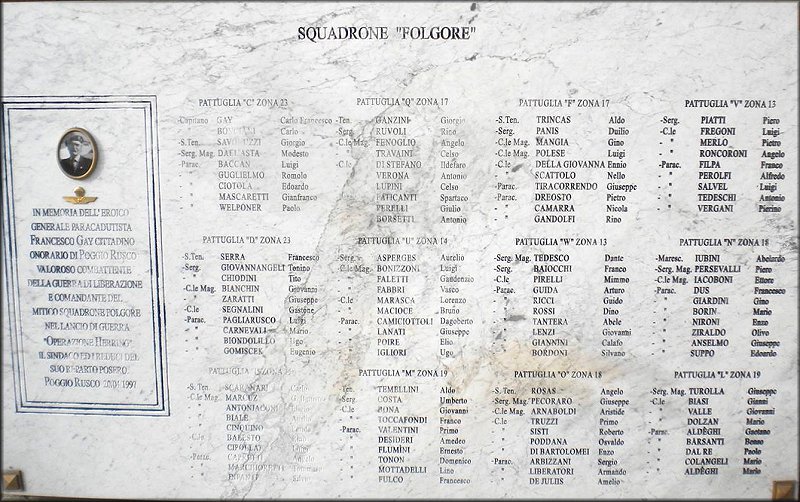 SQUADRONE "FOLGORE"
IN MEMORIA DELL' EROICO
GENERALE PARACADUTISTA
FRANCESCO GAY CITTADINO
ONORARIO DI POGGIO RUSCO
VALOROSO COMBATTENTE
DELLA GUERRA DI LIBERAZIONE
E COMANDANTE DEL
MITICO SQUADRONE FOLGORE
NEL LANCIO DI GUERRA
"OPERAZIONE HERRING"
IL SINDACO ED I REDUCI DEL
SUO REPARTO POSERO
POGGIO RUSCO 20.04.1997
PATTUGLIA "C" ZONA 23
-Capitano GAY Carlo Francesco
" Carlo
-S.Ten. Giorgio
-Serg. Mag. Modesto
-Parac. BACCAN Luigi
" GUGLIELMO Romolo
" CIOTOLA Edoardo
" MASCARETTI Gianfranco
" WELPONER Paolo
PATTUGLIA "Q" ZONA 17
-Ten. GANZINI Giorgio
-Serg. RUVOLI Rino
-C.le Mag. FENOGLIO Angelo
" TRAVAINI Celso
-C.le DI STEFANO Ildefaro
" VERONA Antonio
" LUPINI Celso
" FATICANTI Spartaco
-Parac. PERELLI Giulio
" BORSETTI Antonio
PATTUGLIA "F" ZONA 17
-S.Ten. TRINCAS Aldo
-Serg. PANIS Duilio
-C.le Mag. MANGIA Gino
-C.le Mag. POLESE Luigi
-C.le DELLA GIOVANNA Ennio
" SCATTOLO Nello
-Parac. TIRACORRENDO Giuseppe
" DREOSTO Pietro
" CAMARRA Nicola
" GANDOLFI Rino
PATTUGLIA "V" ZONA 13
-Serg. PIATTI Piero
-C.le FREGONI Luigi
" MERLO Pietro
" RONCORONI Angelo
-Parac. FILPA Franco
" PEROLFI Alfredo
" SALVEL Luigi
" TEDESCHI Antonio
" VERGANI Pierino
PATTUGLIA "D" ZONA 23
-S.Ten. SERRA Francesco
-Serg. GIOVANNANGELI Tonino
" CHIODINI Tito
-C.le Mag. BIANCHIN Giovanni
" ZARATTI Giuseppe
-C.le SEGNALINI Gastone
-Parac. PAGLIARUSCO Mario
" CARNEVALI Mario
" BIONDOLILLO Ugo
" GOMISCEK Eugenio
PATTUGLIA "U" ZONA 14
-Serg. ASPERGES Aurelio
-C.le Mag. BONIZZONI Luigi
" FALETTI Gaudenzio
" FABBRI Vasco
-C.le MARASCA Lorenzo
" MACIOCE Bruno
-Parac. CAMICIOTTOLI Dagoberto
" LANATI Giuseppe
" POIRE Elio
" IGLIORI Ugo
PATTUGLIA "W" ZONA 13
-Serg. Mag. TEDESCO Dante
-Serg. BAIOCCHI Franco
-C.le PIRELLI Mimmo
-Parac. GUIDA Arturo
" RICCI Guido
" ROSSI Dino
" TANTERA Abele
" LENZI Giovanni
" GIANNINI Calafo
" BORDONI Silvano
PATTUGLIA "N" ZONA 18
-Maresc. IUBINI Abelardo
-Serg. Mag. PERSEVALLI Piero
-C.le Mag. IACOBONI Ettore
-Parac. DUS Francesco
" GIARDINI Gino
" BORIN Mario
" NIRONI Enzo
" ZIRALDO Olivo
" ANSELMO Giuseppe
" SUPPO Edoardo
-S. Ten.
-C.le Mag.
" BIALE
" CINQUINO
-C.le
-Parac.
PATTUGLIA "M" ZONA 19
-Ten. TEMELLINI Aldo
-Serg. COSTA Umberto
-C.le BONA Giovanni
" TOCCAFONDI Franco
-Parac. VALENTINI Primo
" DESIDERI Amedeo
" FLUMINI Ernesto
" TONON Domenico
" MOTTADELLI Lino
" FULCO Francesco
PATTUGLIA "O" ZONA 18
-S. Ten. ROSAS Angelo
-Serg. Mag. PECORARO Giuseppe
-C.le Mag. ARNABOLDI Aristide
-C.le TRUZZI Primo
" SISTI Roberto
" PODDANA Osvaldo
" DI BARTOLOMEI Enzo
-Parac. ARBIZZANI Sergio
" LIBERATORI Armando
" DE JULIIS Amelio
PATTUGLIA "L" ZONA 19
-Serg. Mag. TUROLLA Giuseppe
-C.le BIASI Gianni
" VALLE Giovanni
" DOLZAN Mario
-Parac. ALDEGHI Gaetano
" BARSANTI Benso
" DAL RE Paolo
" COLANGELI Mario
" ALDEGHI Mario